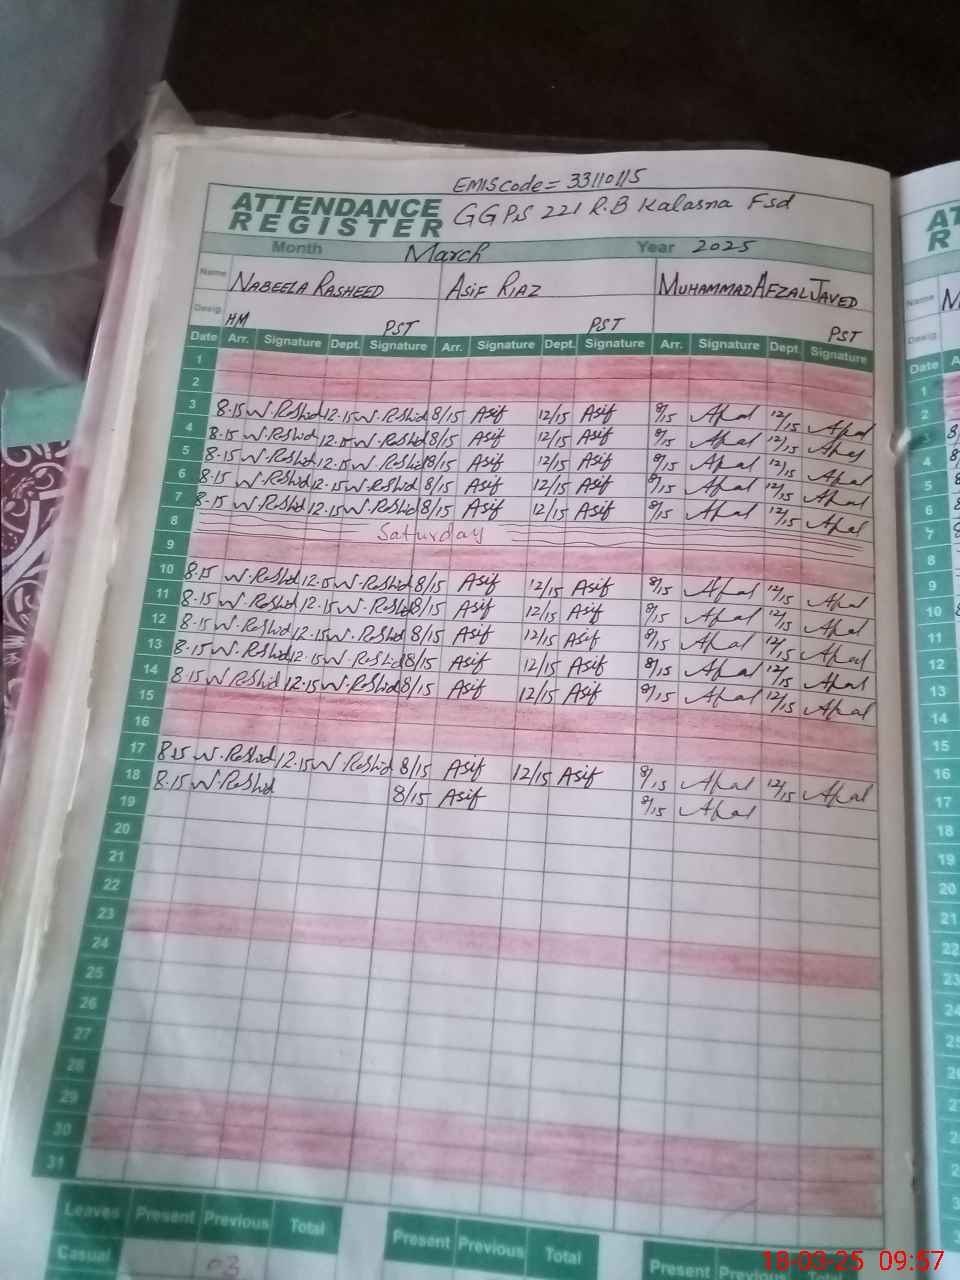 EMIS code = 33110115
ATTENDANCE REGISTER GGPS 221 R.B Kalasna Fsd
Month March Year 2025
Name NABEELA RASHEED ASIF RIAZ MUHAMMAD AFZAL JAVED
Desig. HM PST PST PST
Date Arr. Signature Dept. Signature Arr. Signature Dept. Signature Arr. Signature Dept. Signature
1
2
3 8.15 N.Rashid 12.15 N.Rashid 8/15 Asif 12/15 Asif 8/15 Afzal 12/15 Afzal
4 8.15 N.Rashid 12.15 N.Rashid 8/15 Asif 12/15 Asif 8/15 Afzal 12/15 Afzal
5 8.15 N.Rashid 12.15 N.Rashid 8/15 Asif 12/15 Asif 8/15 Afzal 12/15 Afzal
6 8.15 N.Rashid 12.15 N.Rashid 8/15 Asif 12/15 Asif 8/15 Afzal 12/15 Afzal
7 8.15 N.Rashid 12.15 N.Rashid 8/15 Asif 12/15 Asif 8/15 Afzal 12/15 Afzal
8 Saturday
9
10 8.15 N.Rashid 12.15 N.Rashid 8/15 Asif 12/15 Asif 8/15 Afzal 12/15 Afzal
11 8.15 N.Rashid 12.15 N.Rashid 8/15 Asif 12/15 Asif 8/15 Afzal 12/15 Afzal
12 8.15 N.Rashid 12.15 N.Rashid 8/15 Asif 12/15 Asif 8/15 Afzal 12/15 Afzal
13 8.15 N.Rashid 12.15 N.Rashid 8/15 Asif 12/15 Asif 8/15 Afzal 12/15 Afzal
14 8.15 N.Rashid 12.15 N.Rashid 8/15 Asif 12/15 Asif 8/15 Afzal 12/15 Afzal
15
16
17 8.15 N.Rashid 12.15 N.Rashid 8/15 Asif 12/15 Asif 8/15 Afzal 12/15 Afzal
18 8.15 N.Rashid 8/15 Asif 8/15 Afzal
19
20
21
22
23
24
25
26
27
28
29
30
31
Leaves Present Previous Total Present Previous Total Present
Casual 03
Name
Desig.
Date
1
2
3
4
5
6
7
8
9
10
11
12
13
14
15
16
17
18
19
20
21
22
23
18-03-25 09:57